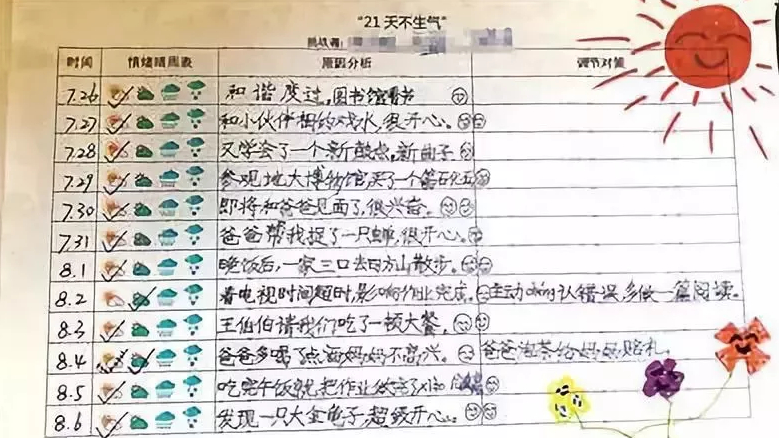 “21天不生气”
挑战者：
时间 情绪晴雨表 原因分析 调节对策
7.26 和谐度过，图书馆看书
7.27 和小伙伴相约戏水，很开心。
7.28 又学会了一个新鼓点，新曲子
7.29 参观地大博物馆买了一个化石
7.30 即将和爸爸见面了，很兴奋。
7.31 爸爸帮我捉了一只蝉，很开心。
8.1 晚饭后，一家三口去四方山散步。
8.2 看电视时间超时，影响作业完成。 主动承认错误，多做一篇阅读。
8.3 王伯伯请我们吃了一顿大餐，
8.4 爸爸多喝了点酒妈妈不高兴。 爸爸泡茶给妈妈赔礼。
8.5 吃完午饭就把作业
8.6 发现一只大金龟子，超级开心。